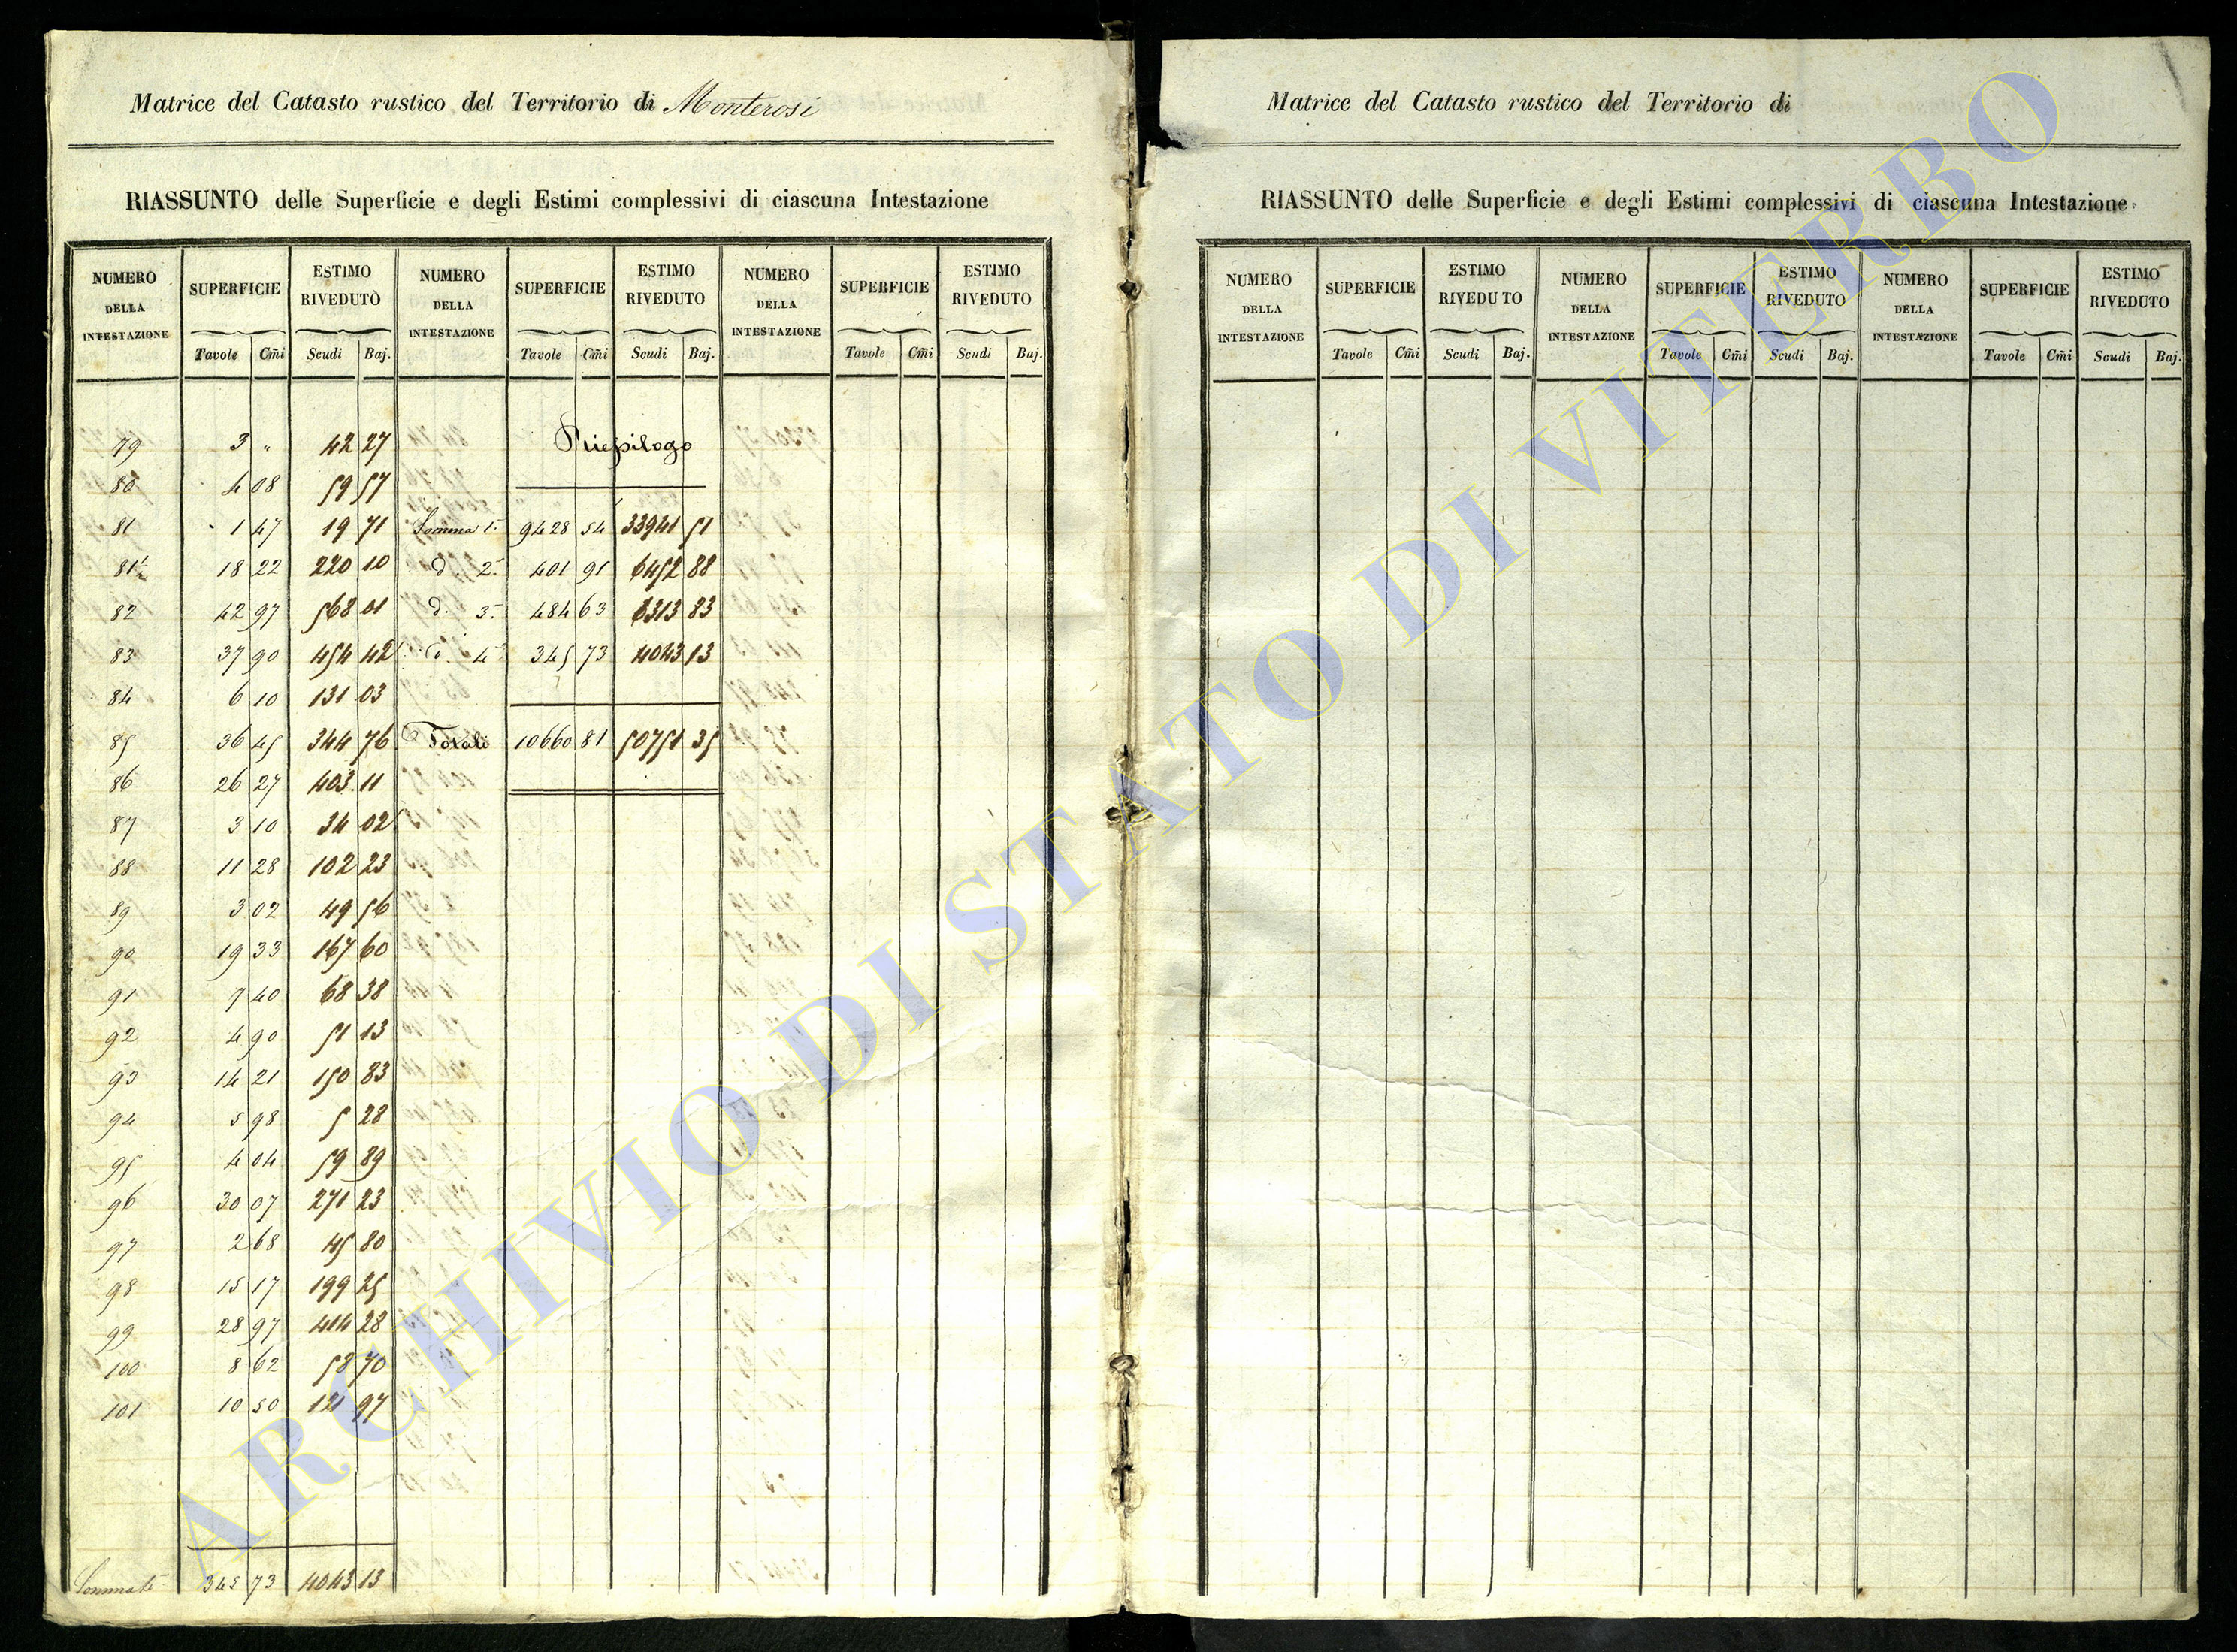 Matrice del Catasto rustico del Territorio di Monterosi
RIASSUNTO delle Superficie e degli Estimi complessivi di ciascuna Intestazione
NUMERO DELLA INTESTAZIONE SUPERFICIE ESTIMO RIVEDUTO NUMERO DELLA INTESTAZIONE SUPERFICIE ESTIMO RIVEDUTO NUMERO DELLA INTESTAZIONE SUPERFICIE ESTIMO RIVEDUTO
Tavole Cm̃i Scudi Baj. Tavole Cm̃i Scudi Baj. Tavole Cm̃i Scudi Baj.
79 3 " 42 27 Riepilogo
80 4 08 59 57
81 1 47 19 71 Somma 1. 9428 54 33941 51
81½ 18 22 220 10 d. 2. 401 91 6452 88
82 42 97 568 01 d. 3. 484 63 6313 83
83 37 90 454 42 d. 4 345 73 4043 13
84 6 10 131 03
85 36 45 344 76 Totali 10660 81 50751 35
86 26 27 403 11
87 3 10 34 02
88 11 28 102 23
89 3 02 49 56
90 19 33 167 60
91 7 40 68 38
92 4 90 51 13
93 14 21 150 83
94 5 98 5 28
95 4 04 59 89
96 30 07 271 23
97 2 68 45 80
98 15 17 199 25
99 28 97 414 28
100 8 62 58 70
101 10 50 121 97
345 73 4043 13
Matrice del Catasto rustico del Territorio di
RIASSUNTO delle Superficie e degli Estimi complessivi di ciascuna Intestazione
NUMERO DELLA INTESTAZIONE SUPERFICIE ESTIMO RIVEDUTO NUMERO DELLA INTESTAZIONE SUPERFICIE ESTIMO RIVEDUTO NUMERO DELLA INTESTAZIONE SUPERFICIE ESTIMO RIVEDUTO
Tavole Cm̃i Scudi Baj. Tavole Cm̃i Scudi Baj. Tavole Cm̃i Scudi Baj.
ARCHIVIO DI STATO DI VITERBO